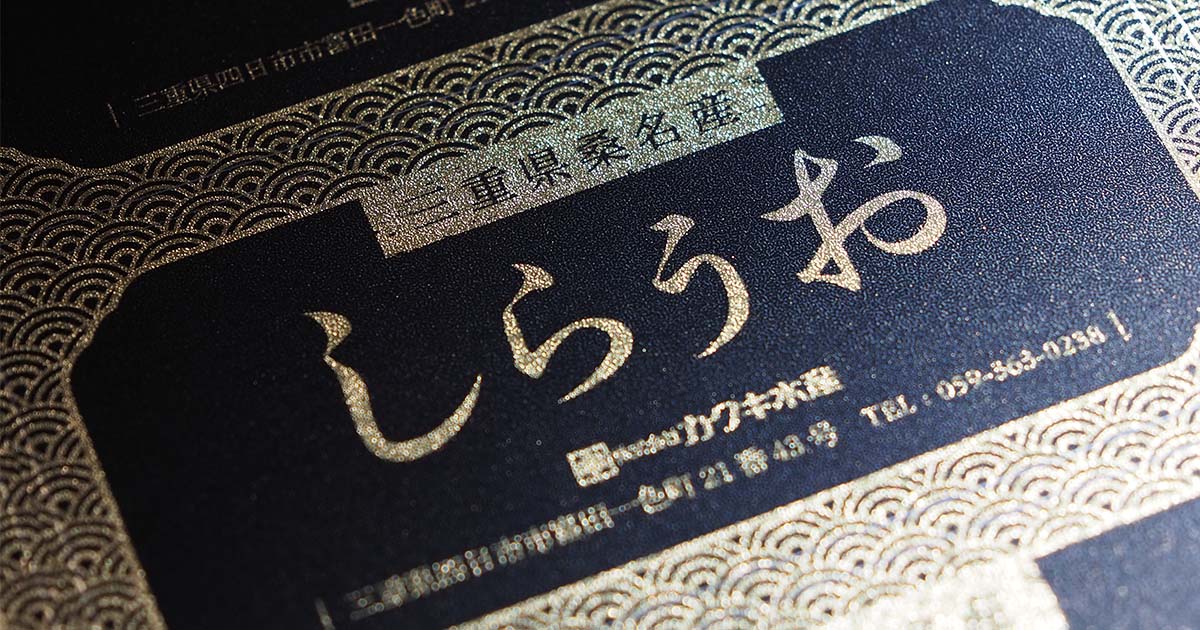 三重県四日市市富田一色町 21
三重県桑名産
しらうお
カワキ水産
三重県四日市市富田一色町 21 番 43 号 TEL : 059-363-0238